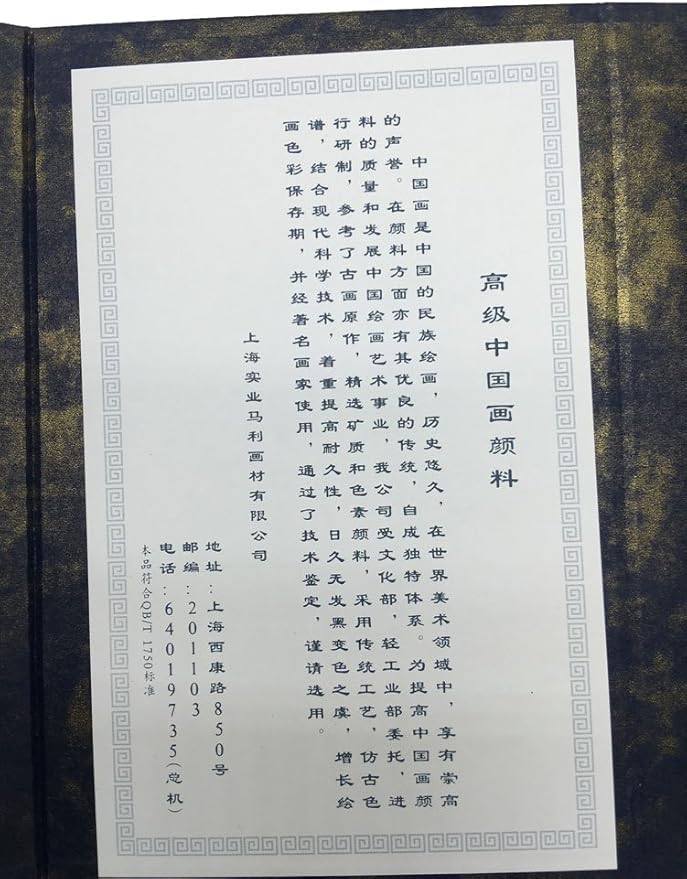 高级中国画颜料
中国画是中国的民族绘画，历史悠久，在世界美术领域中，享有崇高
的声誉。在颜料方面亦有其优良的传统，自成独特体系。为提高中国画颜
料的质量和发展中国绘画艺术事业，我公司受文化部，轻工业部委托，进
行研制，参考了古画原作，精选矿质和色素颜料，采用传统工艺，仿古色
谱，结合现代科学技术，着重提高耐久性，日久无发黑变色之虞，增长绘
画色彩保存期，并经著名画家使用，通过了技术鉴定，谨请选用。
上海实业马利画材有限公司
地址：上海西康路850号
邮编：201103
电话：64019735(总机)
本品符合QB/T 1750标准